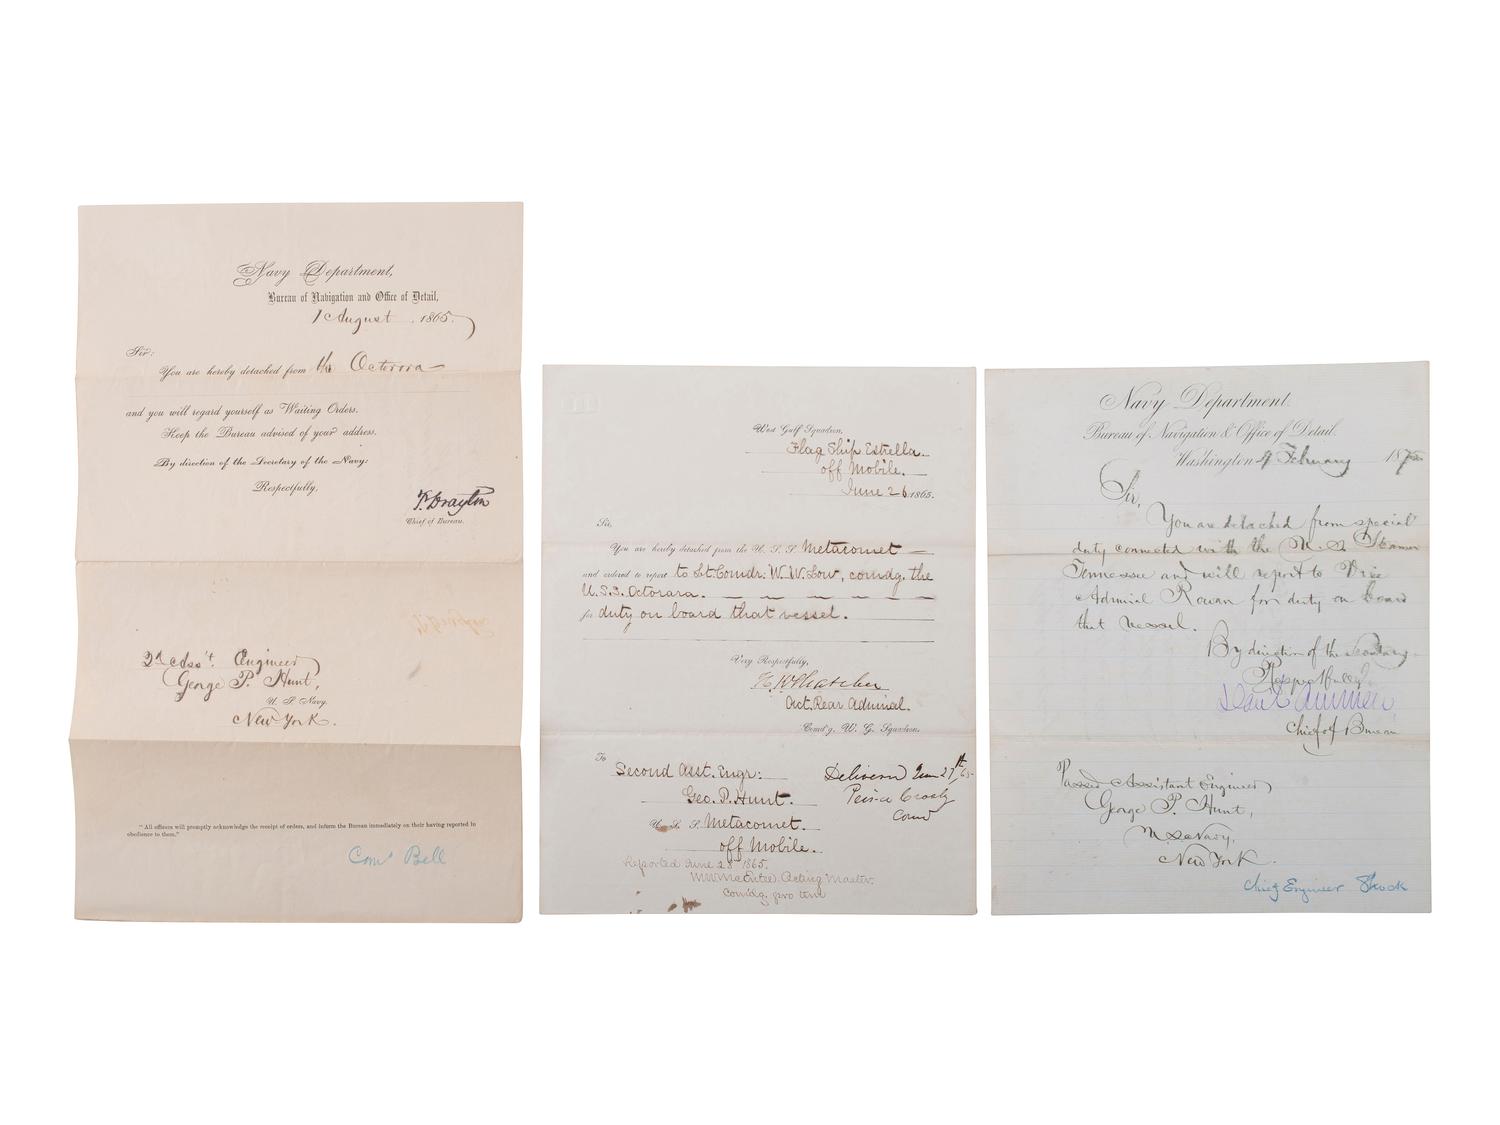 Navy Department,
Bureau of Navigation and Office of Detail,
1 August, 1865.
Sir:
You are hereby detached from the Octorora
and you will regard yourself as Waiting Orders.
Keep the Bureau advised of your address.
By direction of the Secretary of the Navy:
Respectfully,
P. Drayton
Chief of Bureau.
2d Ass't. Engineer
George P. Hunt,
U. S. Navy.
New York.
"All officers will promptly acknowledge the receipt of orders, and inform the Bureau immediately on their having reported in
obedience to them."
Com. Bell
West Gulf Squadron,
Flag Ship Estrella
off Mobile.
June 26, 1865.
Sir,
You are hereby detached from the U. S. S. Metacomet
and ordered to report to Lt. Comdr. W. W. Low, comdg. the
U.S.S. Octorara.
for duty on board that vessel.
Very Respectfully,
H K Thatcher
Act. Rear Admiral.
Comd'g. W. G. Squadron.
To
Second Asst. Engr:
Geo. P. Hunt.
U. S. S. Metacomet.
off Mobile.
Delivered June 27th/65
Peirce Crosby
Comd
Reported June 28 1865.
Acting Master.
Comdg. pro tem
Navy Department.
Bureau of Navigation & Office of Detail.
Washington 4 February 187
Sir,
You are detached from special
duty connected with the U. S. Steamer
Tennessee and will report to Vice
Admiral Rowan for duty on board
that vessel.
By direction of the Secretary
Respectfully
Daniel Ammen
Chief of Bureau
Passed Assistant Engineer
George P. Hunt,
U. S. Navy,
New York.
Chief Engineer Shock